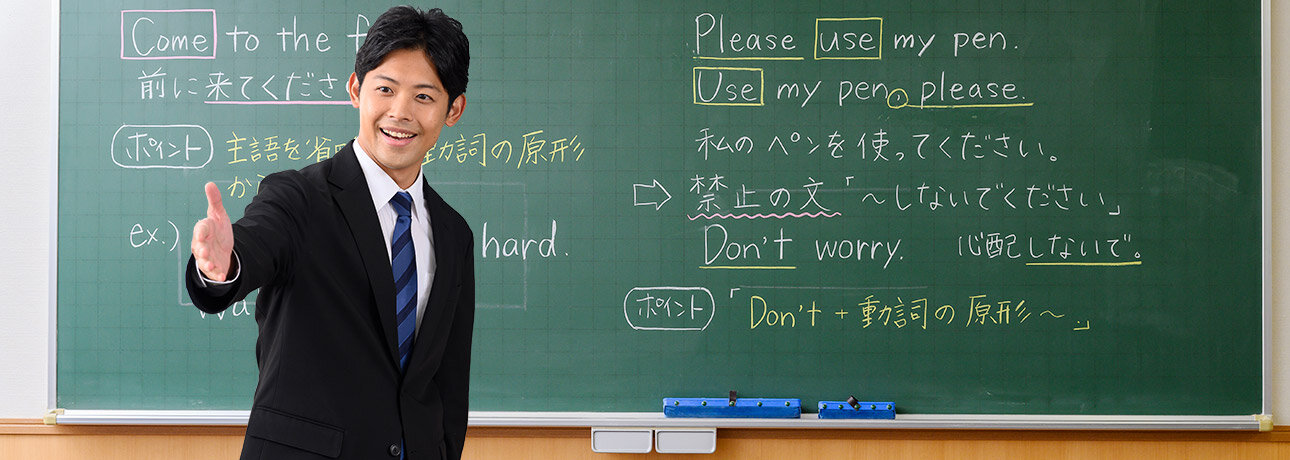 Come to the
前に来てくださ
ポイント 主語を省 動詞の原形
から
ex.) hard.
Please use my pen.
Use my pen, please.
私のペンを使ってください。
⇨ 禁止の文「～しないでください」
Don't worry. 心配しないで。
ポイント 「Don't + 動詞の原形～.」